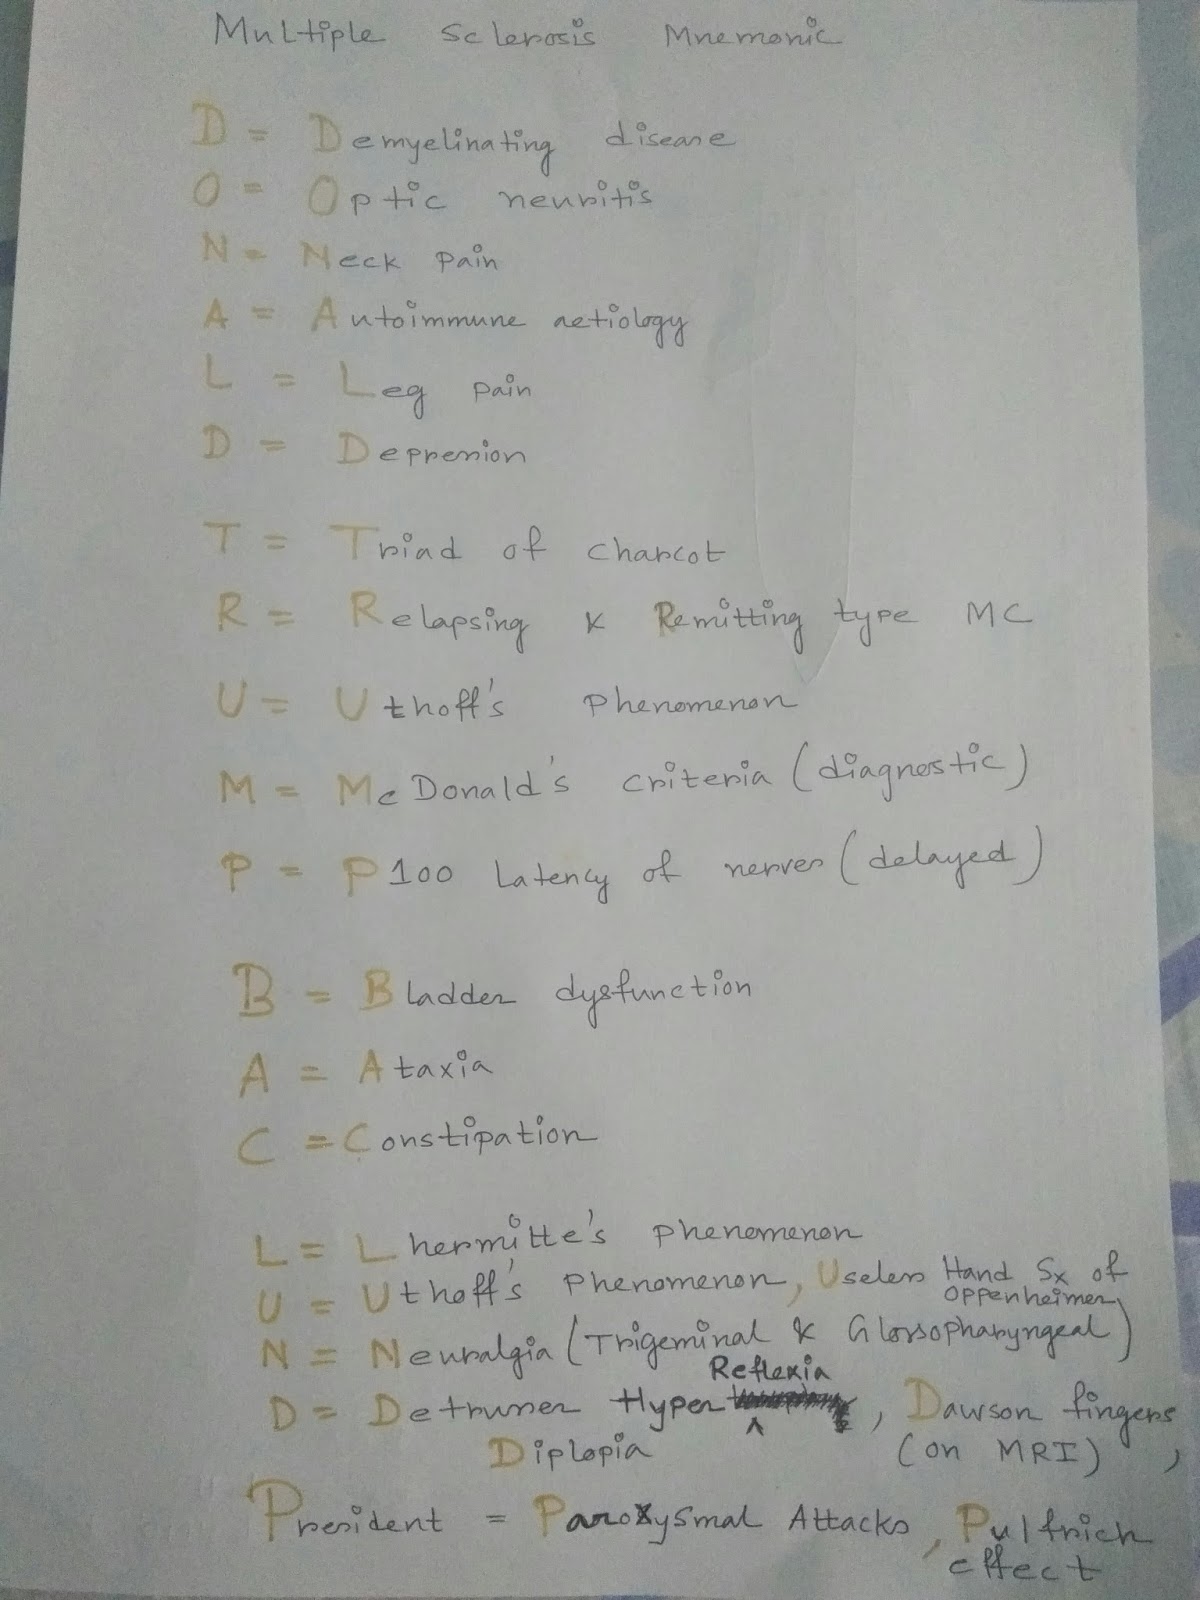 Multiple Sclerosis Mnemonic
D = Demyelinating disease
O = Optic neuritis
N = Neck pain
A = Autoimmune aetiology
L = Leg pain
D = Depression
T = Triad of charcot
R = Relapsing & Remitting type MC
U = Uthoff's phenomenon
M = McDonald's criteria (diagnostic)
P = P100 Latency of nerves (delayed)
B = Bladder dysfunction
A = Ataxia
C = Constipation
L = Lhermitte's phenomenon
U = Uthoff's phenomenon, Useless Hand Sx of
Oppenheimer,
N = Neuralgia (Trigeminal & Glossopharyngeal)
Reflexia
D = Detrusser Hyper ^, Dawson fingers
Diplopia (on MRI) ,
President = Paroxysmal Attacks, Pulfrich
effect